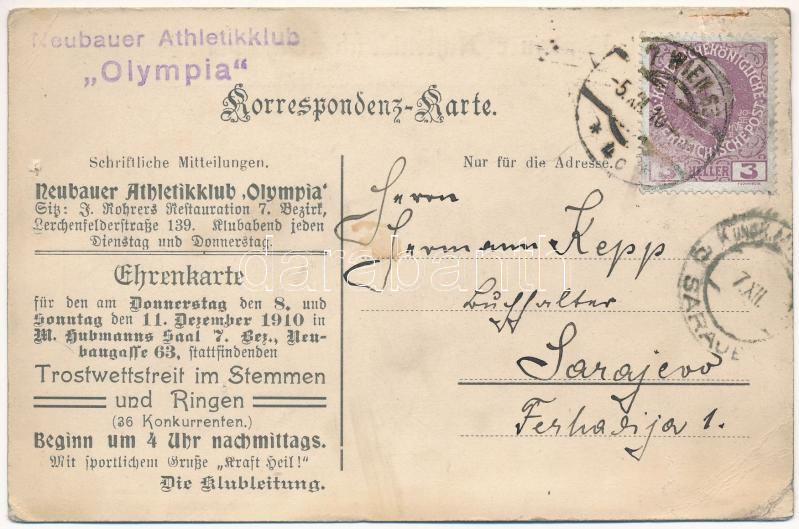 Neubauer Athletikklub
„Olympia“
Korrespondenz-Karte.
Schriftliche Mitteilungen.
Neubauer Athletikklub ‚Olympia‘
Sitz: J. Rohrers Restauration 7. Bezirk,
Lerchenfelderstraße 139. Klubabend jeden
Dienstag und Donnerstag.
Ehrenkarte
für den am Donnerstag den 8. und
Sonntag den 11. Dezember 1910 in
M. Hubmanns Saal 7. Bez., Neu-
baugasse 63, stattfindenden
Trostwettstreit im Stemmen
und Ringen
(36 Konkurrenten.)
Beginn um 4 Uhr nachmittags.
Mit sportlichem Gruße „Kraft Heil!“
Die Klubleitung.
Nur für die Adresse.
Herrn
Hermann Kepp
Buchhalter
Sarajevo
Ferhadija 1.
WIEN
-5.XII.10
3 HELLER 3
7.XII.
SARAJE
darabanth